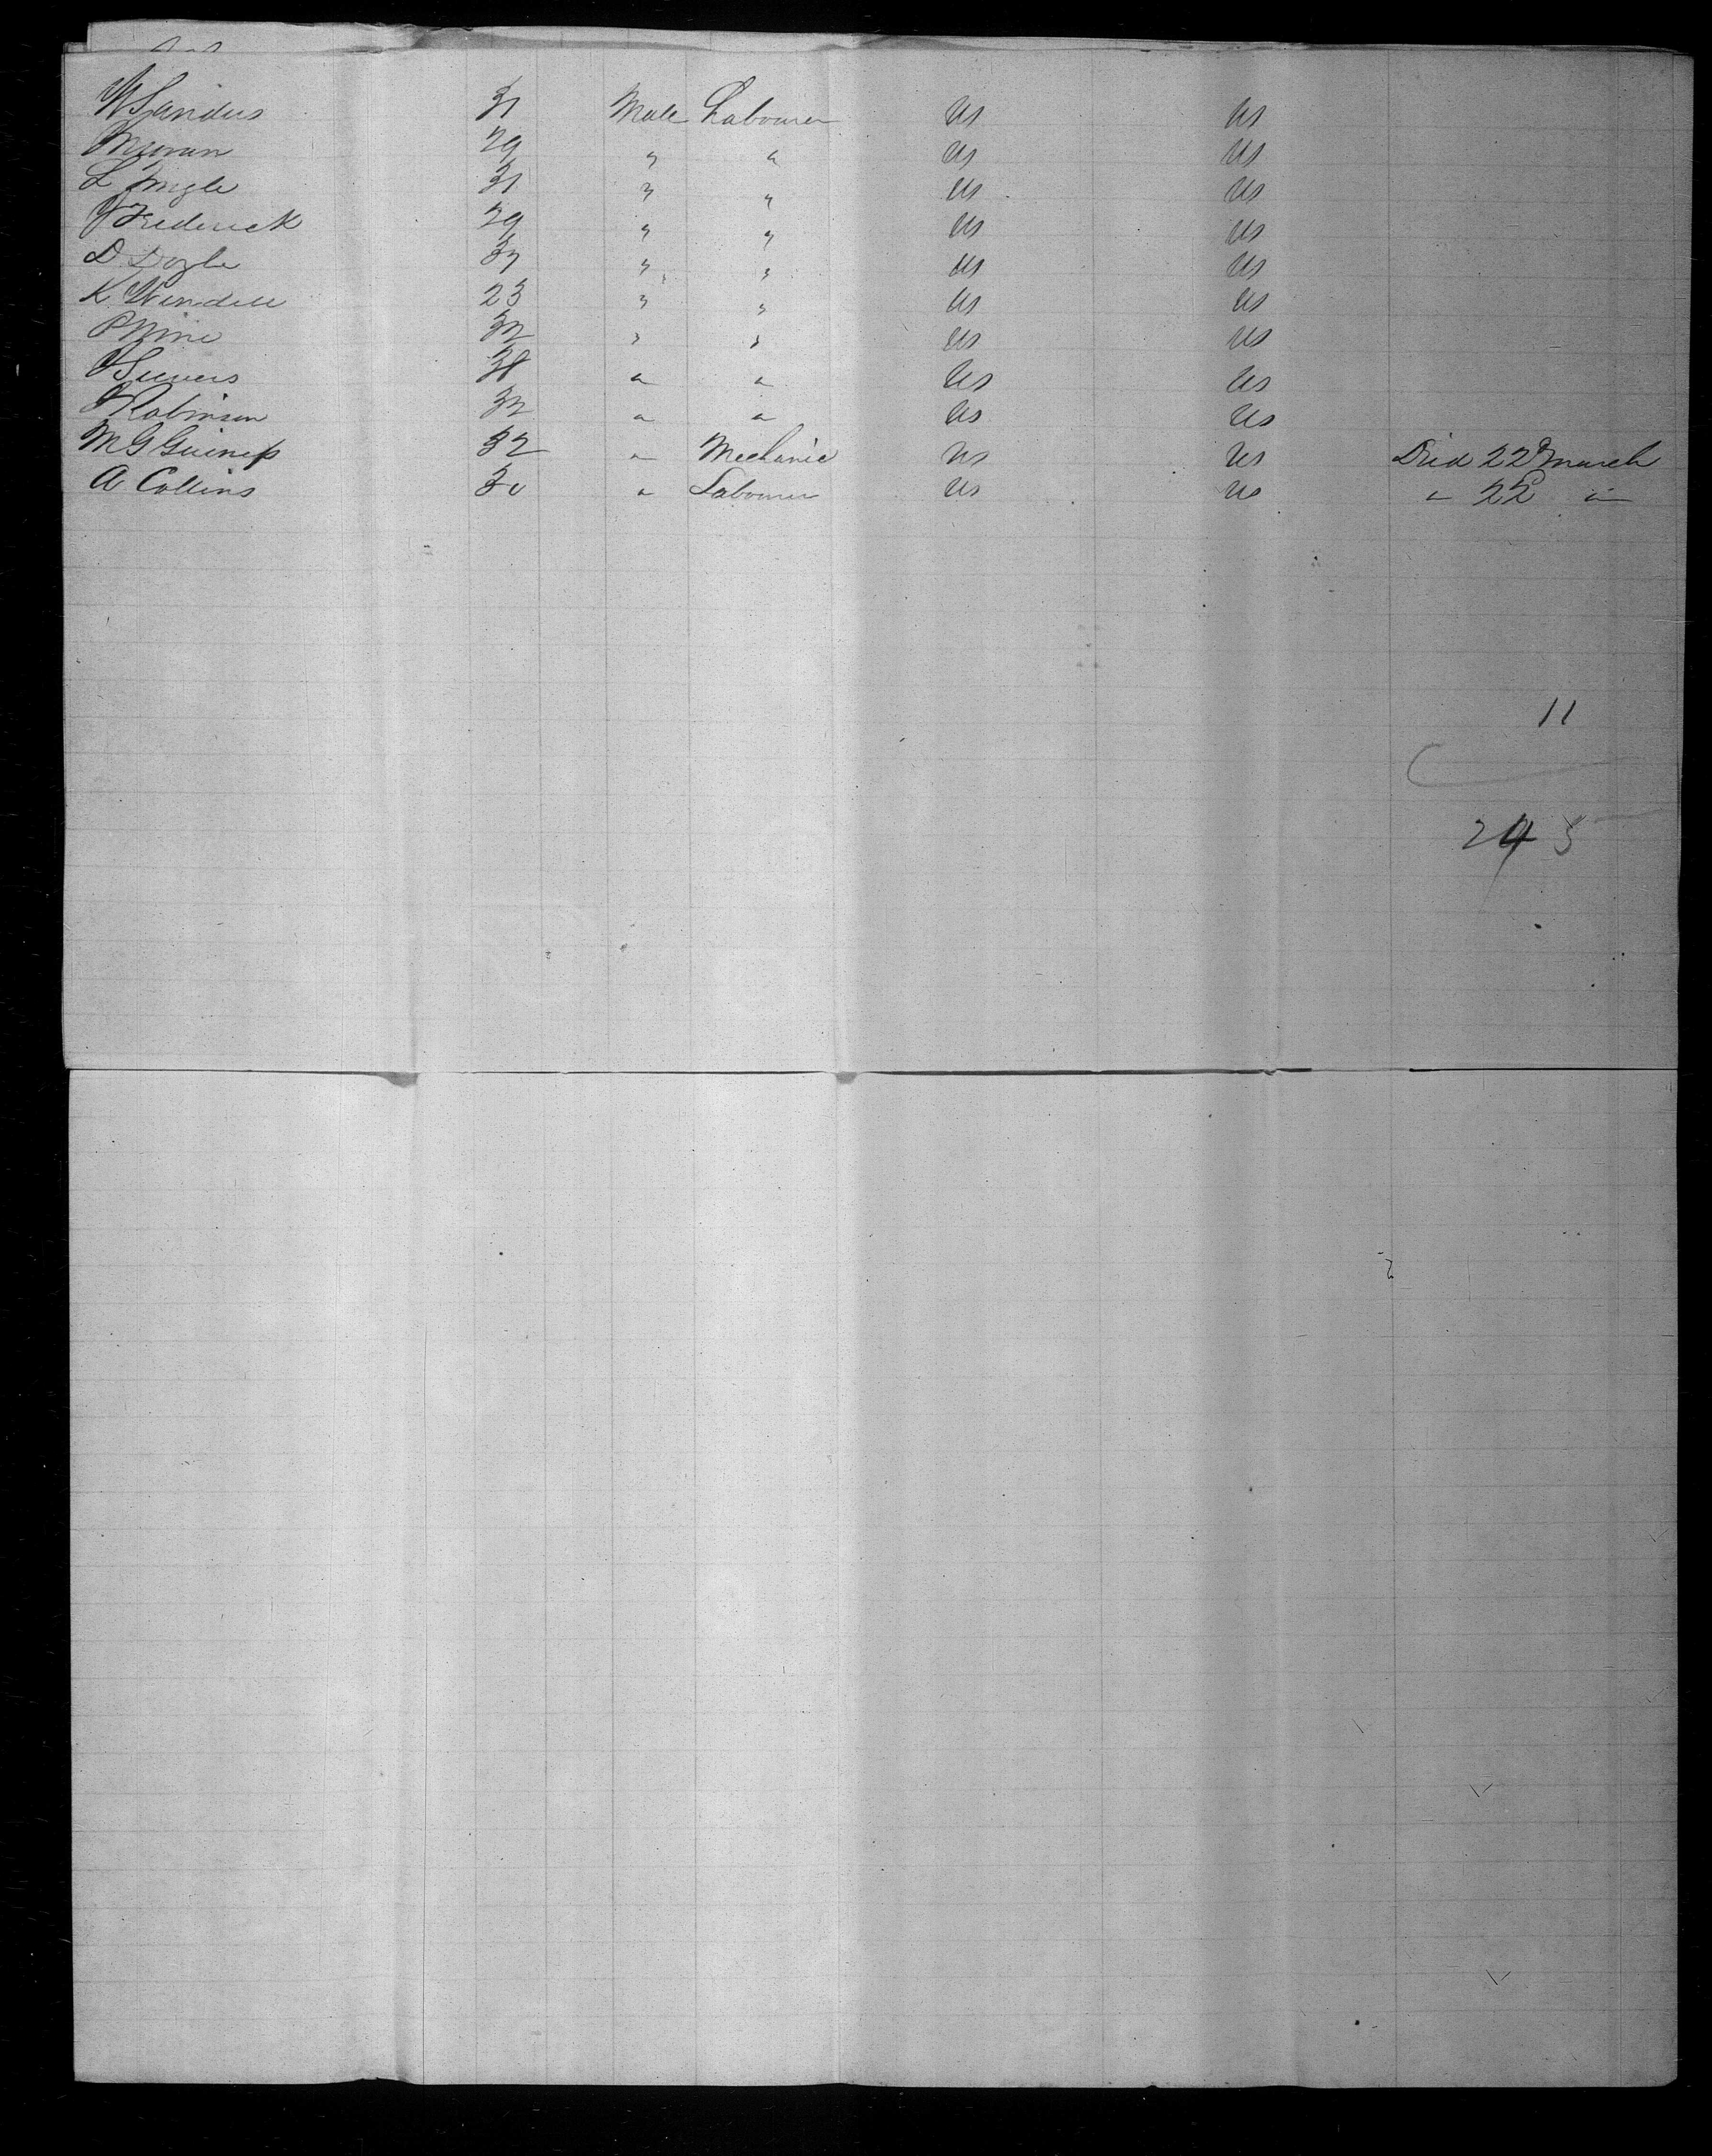 W Sandus 31 Male Labourer US US
Moran 29 " " US US
L Pingle 31 " " US US
J Frederick 29 " " US US
D Doyle 37 " " US US
K Wendell 23 " " US US
P Mine 32 " " US US
J Seivers 38 " " US US
J Robinson 32 " " US US
M G Guiness 32 " Mechanic US US Died 22d March
A Collins 30 " Labourer US US " 22d "
11
245